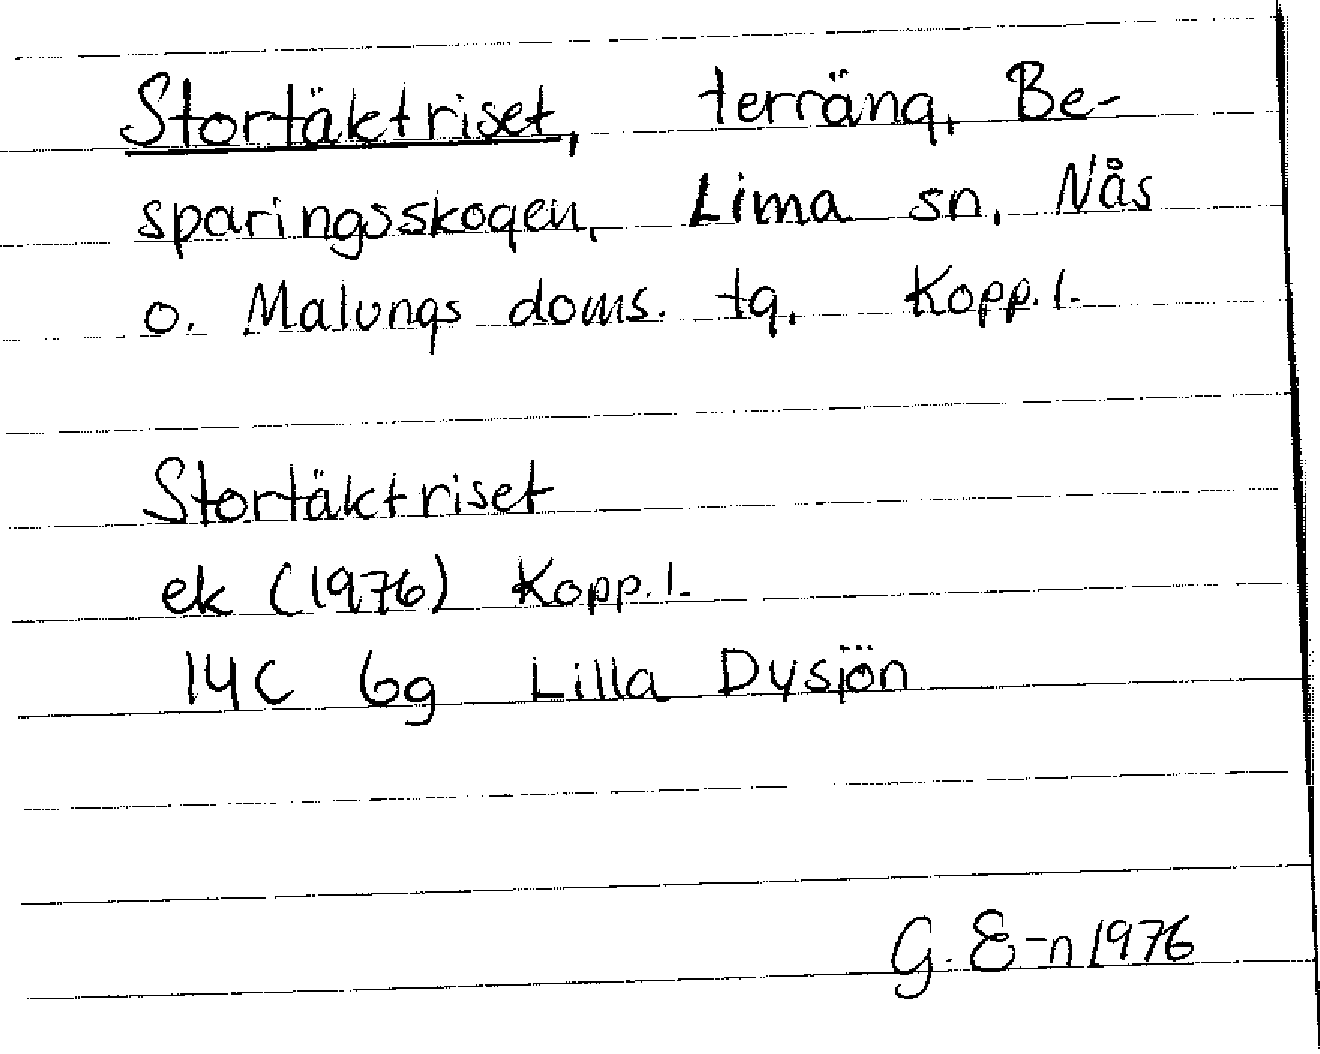 Stortäktriset, terräng, Be-
sparingsskogen, Lima sn, Nås
o. Malungs doms. tg, Kopp.l.
Stortäktriset
ek (1976) Kopp.l.
14C 6g Lilla Dysjön
G. E-n 1976